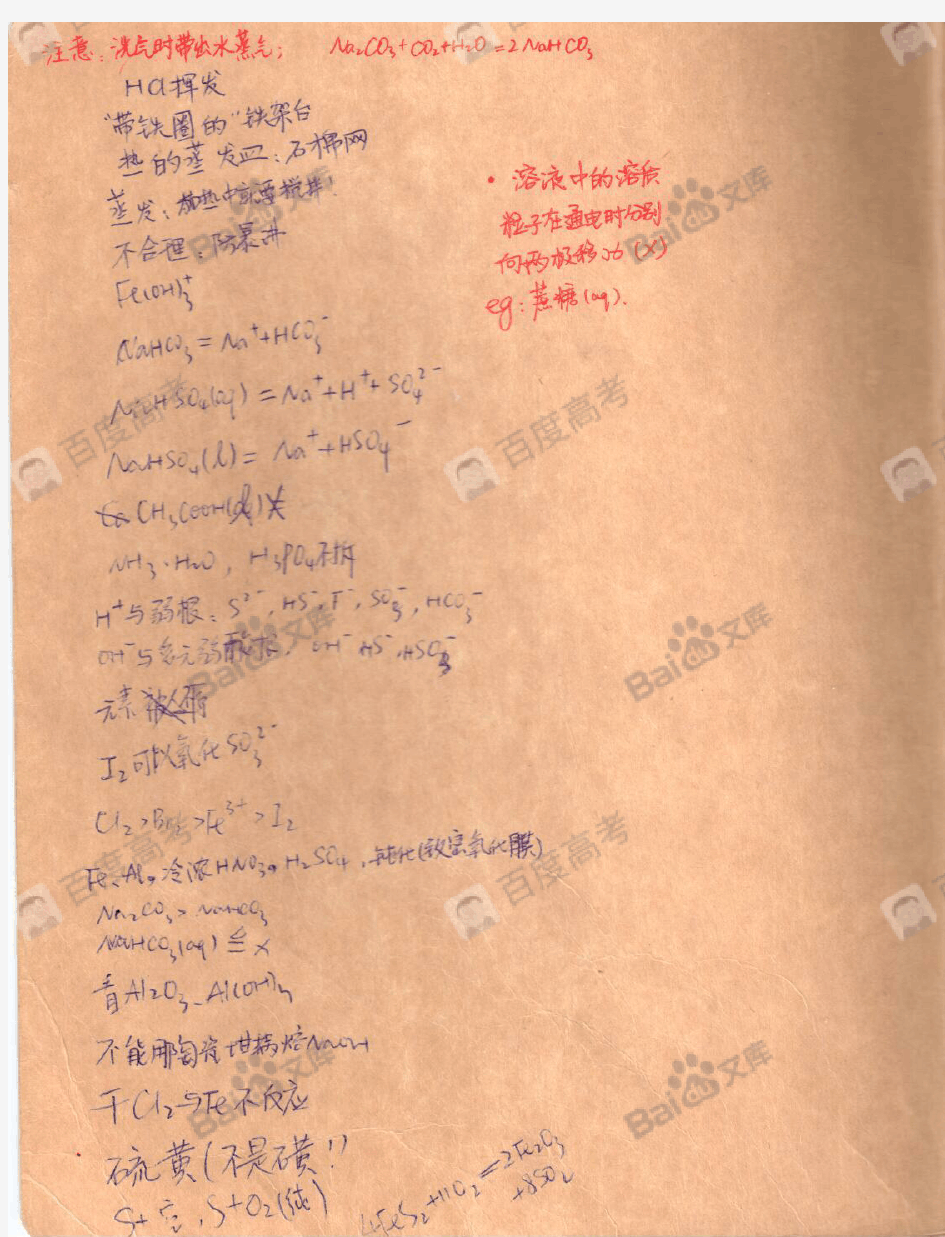 注意:洗气时带出水蒸气; Na₂CO₃+CO₂+H₂O=2NaHCO₃
HCl挥发
"带铁圈的"铁架台
热的蒸发皿:石棉网
蒸发:加热中就要搅拌
不合理:防暴沸
Fe(OH)₃⁺
NaHCO₃=Na⁺+HCO₃⁻
NaHSO₄(aq)=Na⁺+H⁺+SO₄²⁻
NaHSO₄(l)=Na⁺+HSO₄⁻
CH₃COOH
NH₃·H₂O,H₃PO₄不拆
H⁺与弱根:S²⁻,HS⁻,F⁻,SO₃⁻,HCO₃⁻
OH⁻与多元弱酸根,OH⁻ HS⁻,HSO₃⁻
元素
I₂可以氧化SO₃²⁻
Cl₂>Br₂>Fe³⁺>I₂
Fe、Al,冷浓HNO₃,H₂SO₄,钝化(致密氧化膜)
Na₂CO₃>NaHCO₃
NaHCO₃(aq)≜×
看Al₂O₃、Al(OH)₃
不能用陶瓷坩埚熔NaOH
干Cl₂与Fe不反应
硫黄(不是磺!)
S+空,S+O₂(纯) 4FeS₂+11O₂=2Fe₂O₃
+8SO₂
• 溶液中的溶质
粒子在通电时分别
向两极移动(×)
eg:蔗糖(aq).
百度高考
Baidu文库